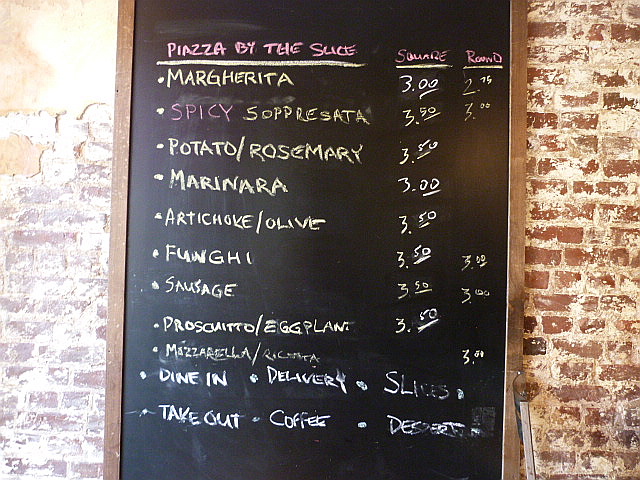 PIAZZA BY THE SLICE SQUARE ROUND
• MARGHERITA 3.00 2.75
• SPICY SOPPRESATA 3.50 3.00
• POTATO/ROSEMARY 3.50
• MARINARA 3.00
• ARTICHOKE/OLIVE 3.50
• FUNGHI 3.50 3.00
• SAUSAGE 3.50 3.00
• PROSCUITTO/EGGPLANT 3.50
• MOZZARELLA/RICOTTA 3.00
• DINE IN • DELIVERY • SLICES •
• TAKE OUT • COFFEE • DESSERT